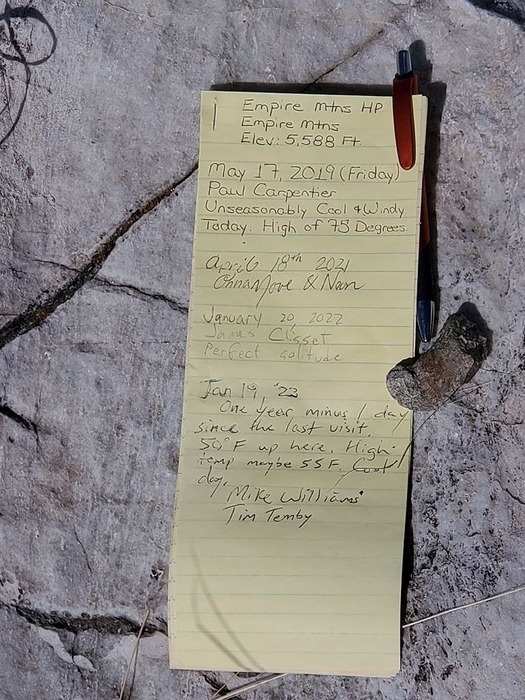 Empire Mtns HP
Empire Mtns
Elev: 5,588 Ft.
May 17, 2019 (Friday)
Paul Carpentier
Unseasonably Cool & Windy
Today. High of 75 Degrees.
April 18th 2021
& Nam
January 20, 2022
James Clisset
Perfect solitude
Jan 19, '23
One year minus 1 day
since the last visit.
50°F up here, High
temp maybe 55 F. Cool
day.
Mike Williams
Tim Temby